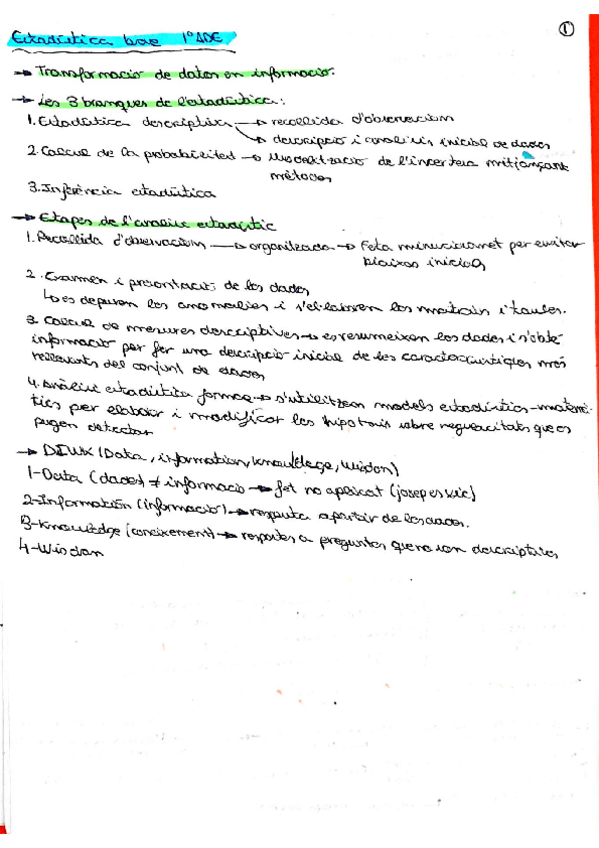 ①
Estadística base 1º ADE
→ Transformació de datos en informació.
→ Les 3 branques de l'estadística:
1. Estadística descriptiva → recollida d'observacions
→ descripció i analisis inicial de dades
2. Calcul de la probabilitat → Modelització de l'incertesa mitjançant
mètodes
3. Inferència estadística
→ Etapes de l'analisis estadístic
1. Recollida d'observacions → organitzada → Feta minuciosament per evitar
biaixos inicials
2. Examen i presentació de les dades
↳ es depuren les anomalies i s'elaboren les matrius i taules.
3. Calcul de mesures descriptives → es resumeixen les dades i s'obté
informació per fer una descripció inicial de les característiques més
rellevants del conjunt de dades
4. Anàlisi estadística formal → s'utilitzen models estadístics-matemà-
tics per elaborar i modificar les hipotesis sobre regularitats que es
pugen detectar
→ DIWK (Data, information, knowledge, wisdon)
1-Data (dades) ≠ informació → fet no aplicat (josep es ric)
2-Información (informació) → resposta a partir de les dades.
3-Knowledge (coneixement) → respostes a preguntes que no son descriptives
4-Wisdon